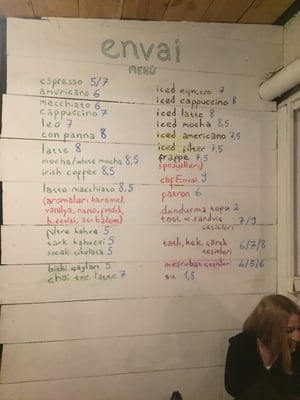 envai
MENÜ
espresso 5/7
americano 6
macchiato 6
cappuccino 7
leo 7
con panna 8
latte 8
mocha/white mocha 8,5
irish coffee 8,5
latte macchiato 8,5
(aromaları karamel,
vanilya, nane, fındık,
filtre kahve 5
türk kahvesi 5
sıcak çikolata 5
bitki çayları 5
chai tea latte 7
iced espresso 7
iced cappuccino 8
iced latte 8
iced mocha 8,5
iced americano 7,5
iced filter 7,5
frappe 7,5
9
patron 6
dondurma topu 2
tost ve sandviç
çeşitleri 7/9
tatlı, kek, çörek
çeşitleri 6/7/8
meşrubat çeşitleri 4/5/6
su 1,5